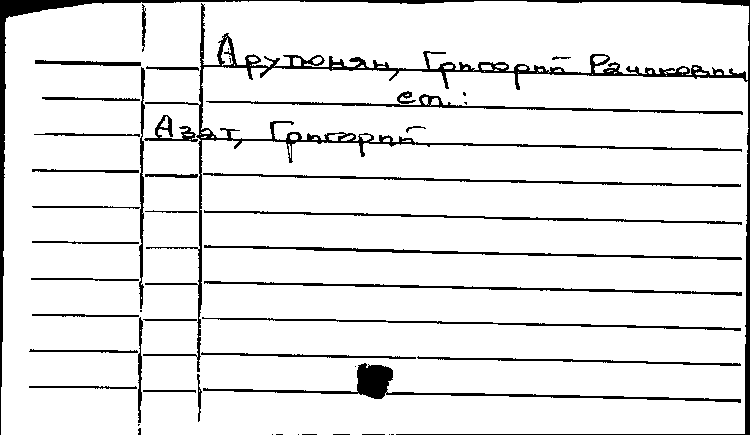 Арутюнян, Григорий Рачикович
см.:
Азат, Григорий.